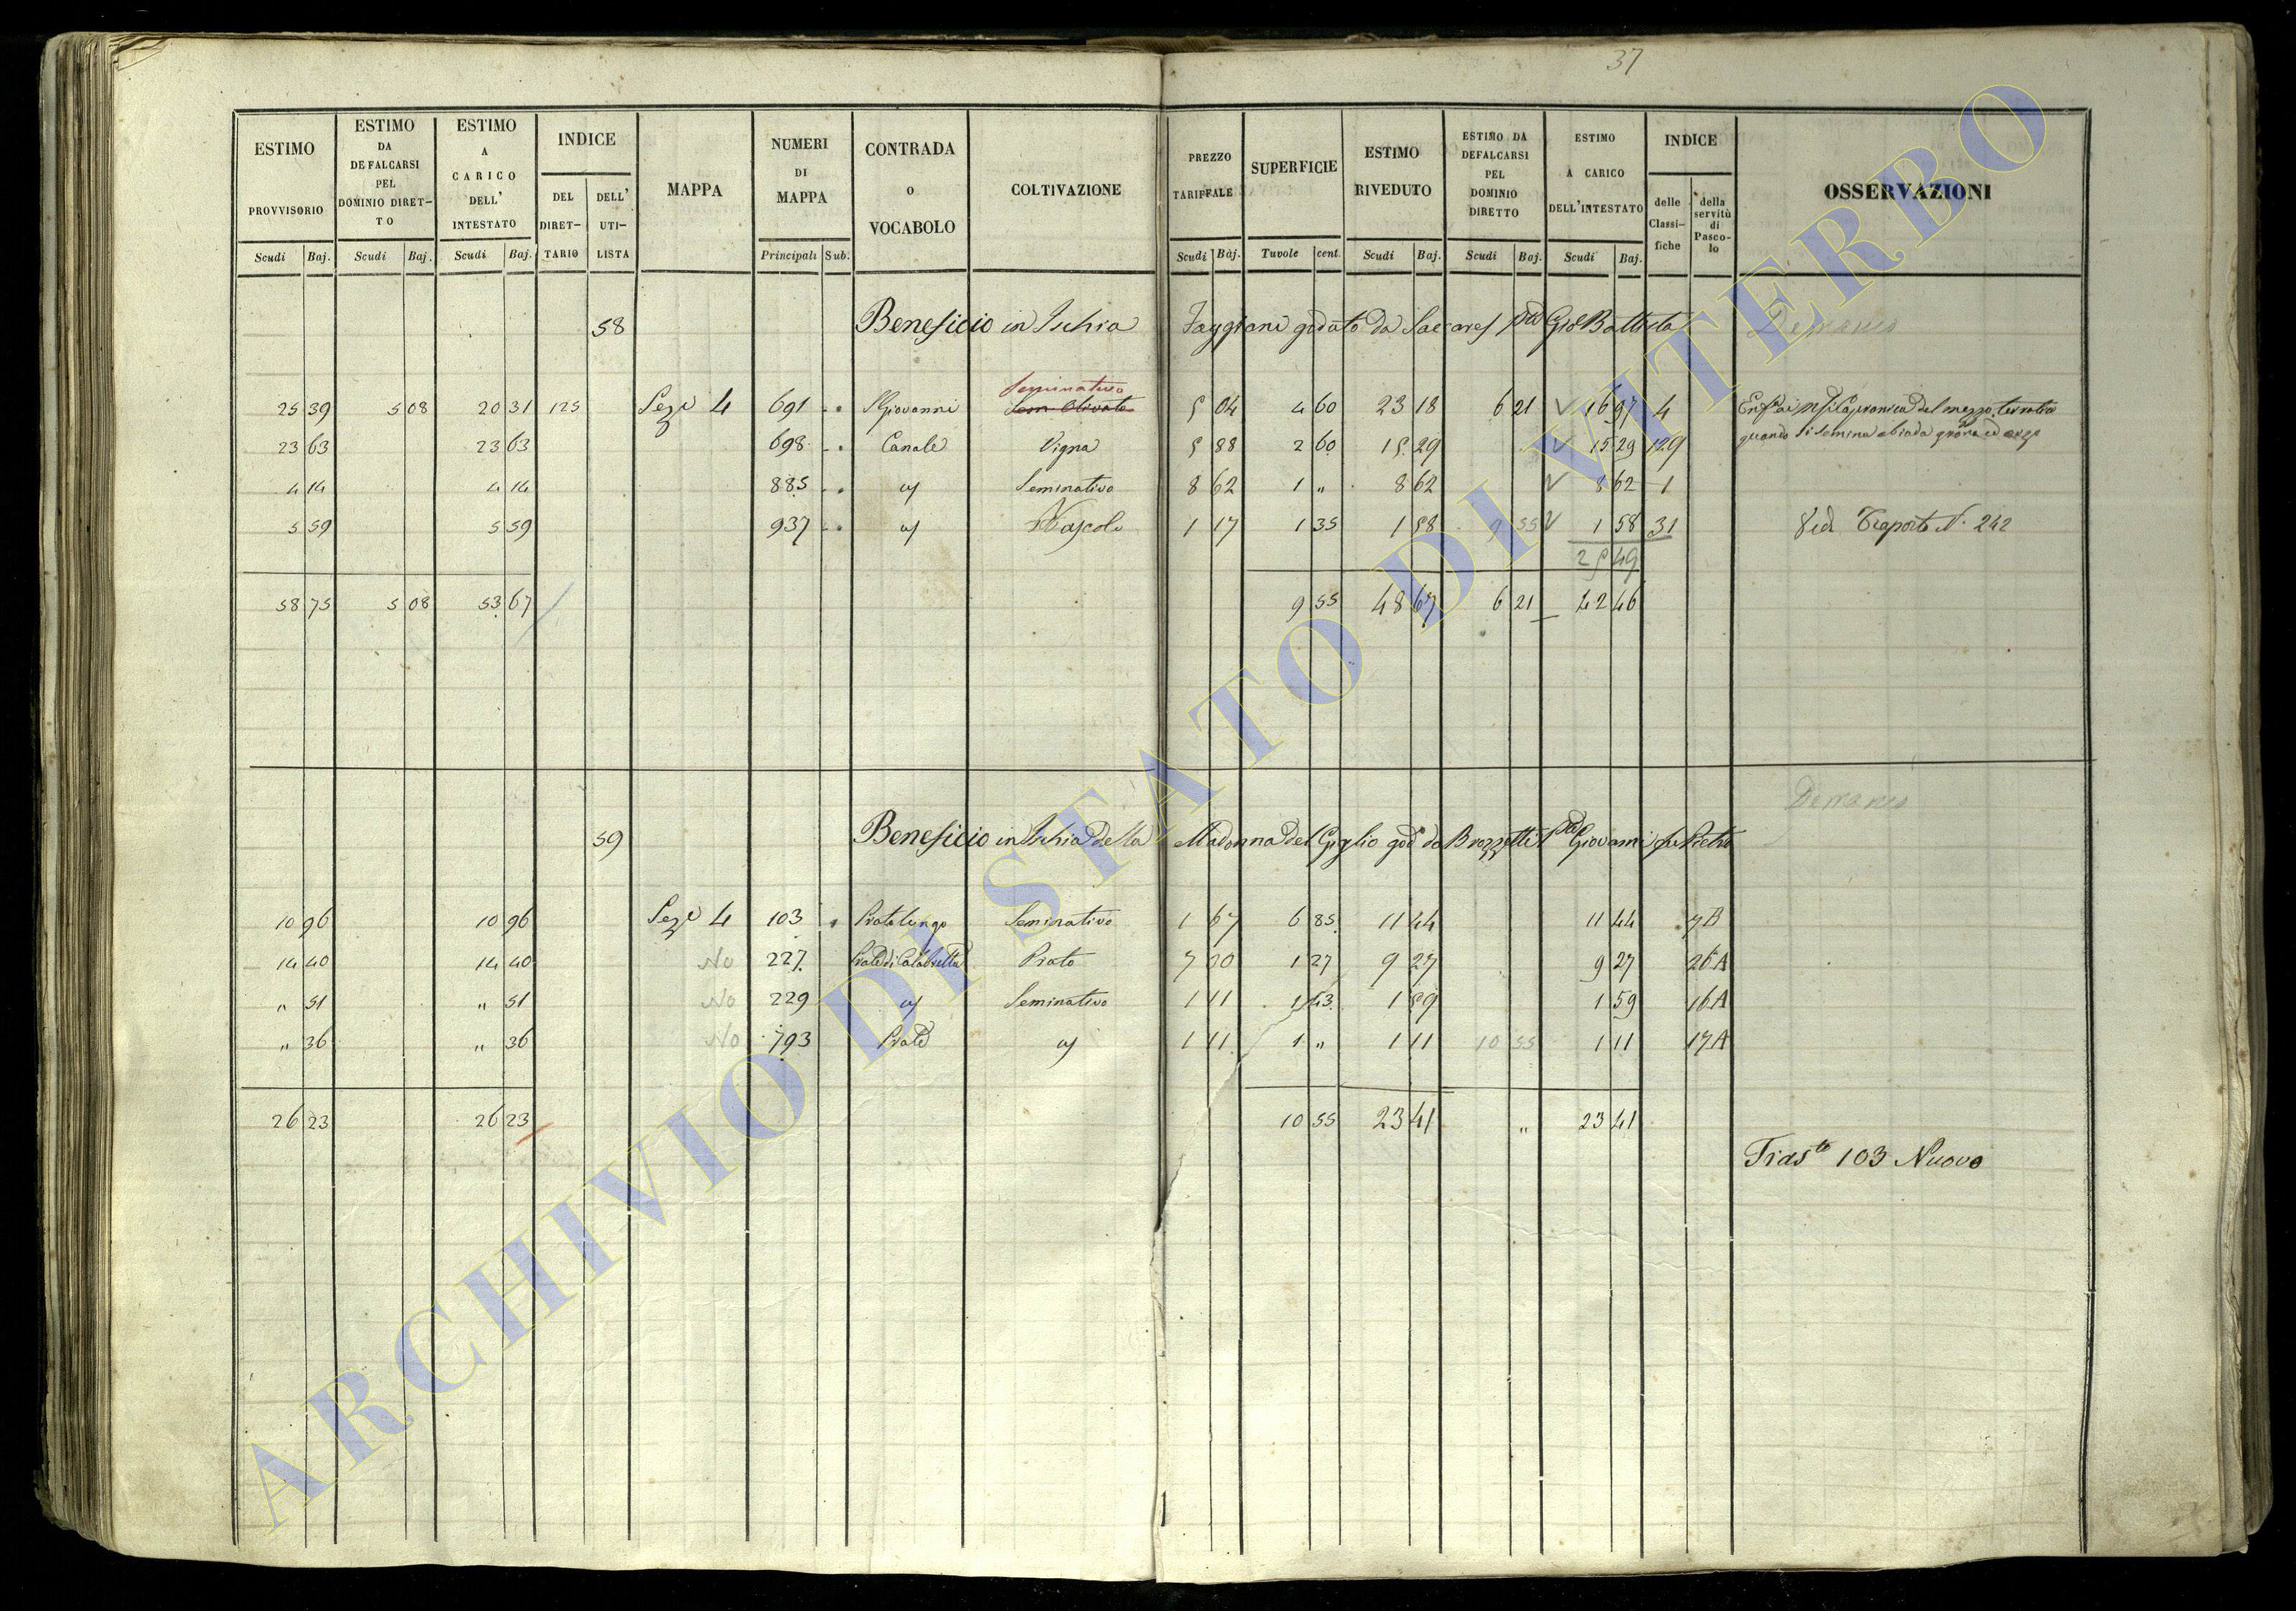 37
ESTIMO PROVVISORIO Scudi Baj. ESTIMO DA DEFALCARSI PEL DOMINIO DIRETTO Scudi Baj. ESTIMO A CARICO DELL' INTESTATO Scudi Baj. INDICE DEL DIRETTARIO DELL' UTILISTA MAPPA NUMERI DI MAPPA Principali Sub. CONTRADA O VOCABOLO COLTIVAZIONE PREZZO TARIFFALE Scudi Baj. SUPERFICIE Tavole cent. ESTIMO RIVEDUTO Scudi Baj. ESTIMO DA DEFALCARSI PEL DOMINIO DIRETTO Scudi Baj. ESTIMO A CARICO DELL'INTESTATO Scudi Baj. INDICE delle Classifiche della servitù di Pascolo OSSERVAZIONI
58 Beneficio in Ischia Faggiani goduto da Gio Battista Demanio
Seminativo
25 39 5 08 20 31 125 Seze 4 691 S Giovanni Sem Olivato 5 04 4 60 23 18 6 21 V 16 97 4
23 63 23 63 698 Canale Vigna 5 88 2 60 15 29 V 15 29 129 quando si semina
4 14 4 14 885 " Seminativo 8 62 1 " 8 62 V 8 62 1
5 59 5 59 937 " Pascolo 1 17 1 35 1 58 9 55 V 1 58 31 Ved Trasporto N. 242
25 49
58 75 5 08 53 67 9 55 48 67 6 21 42 46
Demanio
59 Beneficio in Ischia della Madonna del Giglio god° da Brozzetti Giovanni fu Pietro
10 96 10 96 Seze 4 103 Pratolungo Seminativo 1 67 6 85 11 44 11 44 7B
14 40 14 40 No 227 Prato di Calabretta Prato 7 30 1 27 9 27 9 27 26A
" 51 " 51 No 229 " Seminativo 1 11 1 43 1 59 1 59 16A
" 36 " 36 No 793 Prato " 1 11 1 " 1 11 10 55 1 11 17A
26 23 26 23 10 55 23 41 " 23 41
Trasto 103 Nuovo
ARCHIVIO DI STATO DI VITERBO